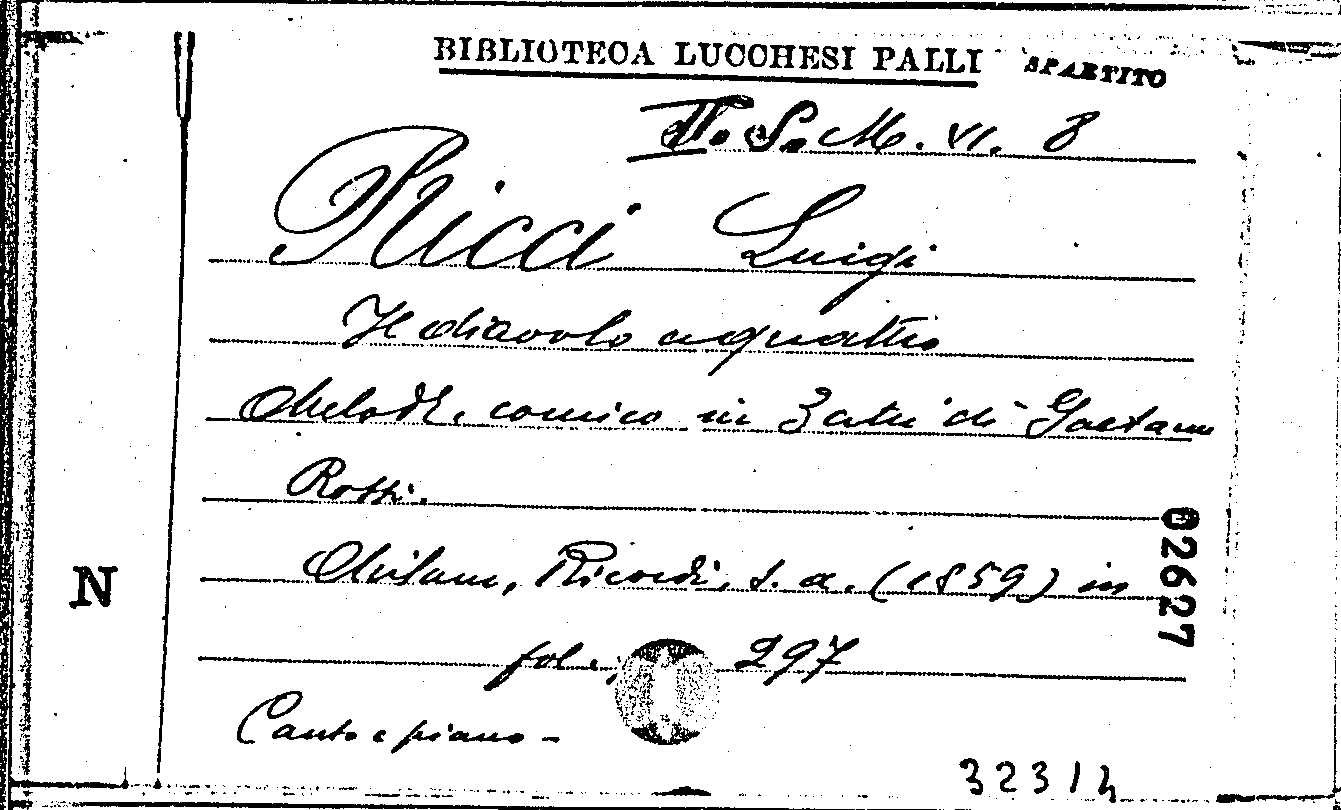 BIBLIOTECA LUCCHESI PALLI SPARTITO
S. M. VI. 8
Ricci Luigi
Il diavolo a quattro
Melodr. comico in 3 atti di Gaetano
Rossi.
Milano, Ricordi, s. a. (1859) in
fol. 297
Canto e piano -
N
02627
32314